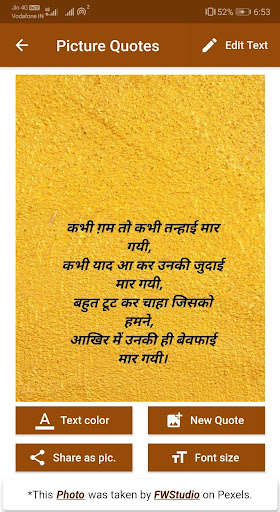 Jio 4G VoD
Vodafone IN
52% 6:53
Picture Quotes
Edit Text
कभी ग़म तो कभी तन्हाई मार
गयी,
कभी याद आ कर उनकी जुदाई
मार गयी,
बहुत टूट कर चाहा जिसको
हमने,
आखिर में उनकी ही बेवफाई
मार गयी।
Text color
New Quote
Share as pic.
Font size
*This Photo was taken by FWStudio on Pexels.